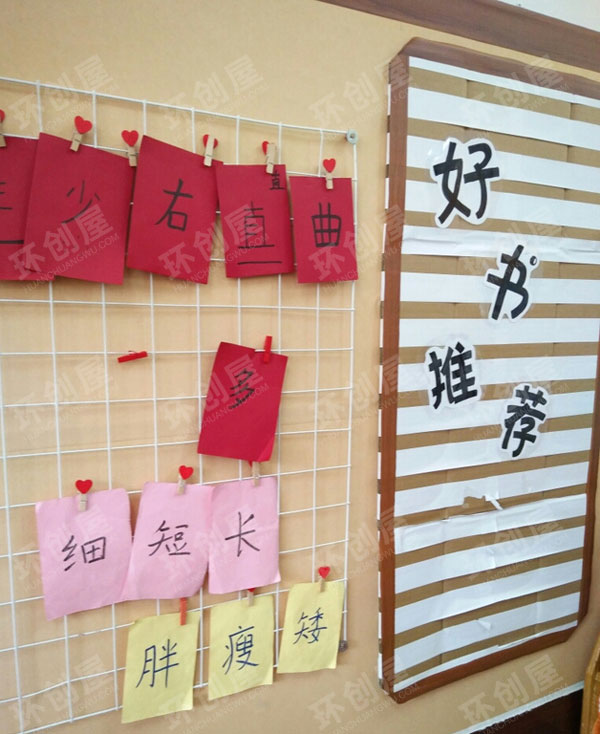 少 右 直 直 曲
多
细 短 长
胖 瘦 矮
好
书
推
荐
环创屋
HUANCHUANGWU.COM